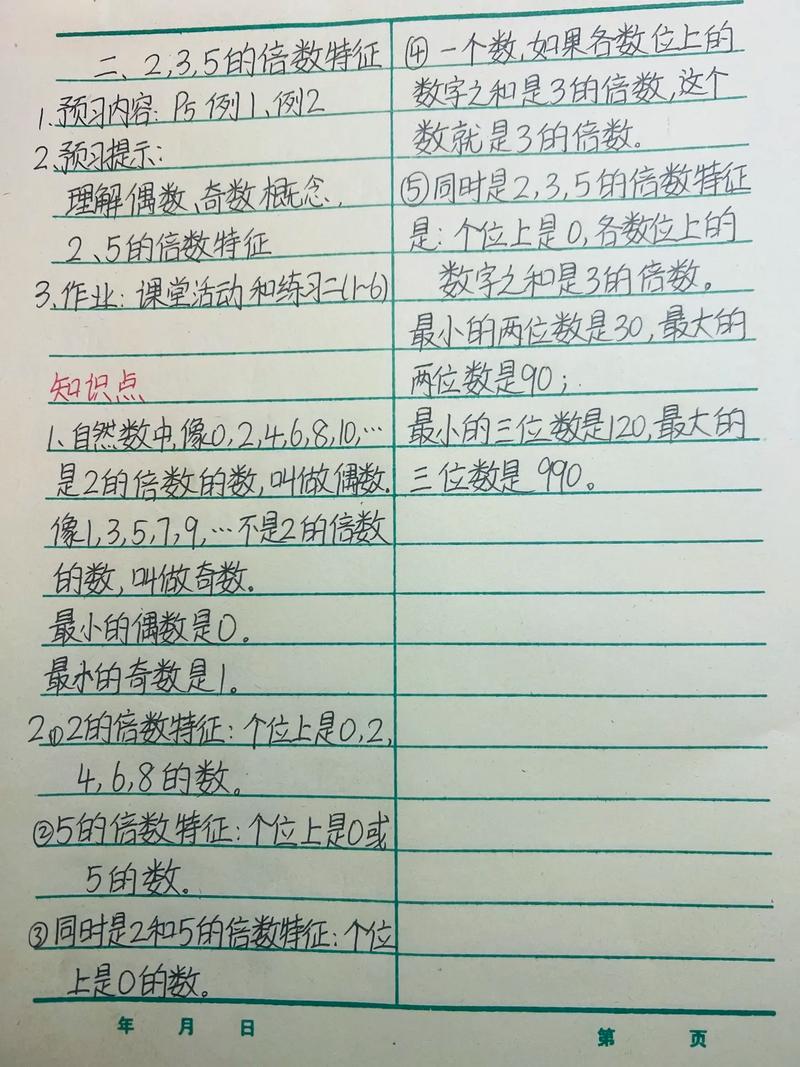 二、2,3,5的倍数特征
1.预习内容:P5 例1、例2
2.预习提示:
理解偶数、奇数概念.
2、5的倍数特征
3.作业:课堂活动和练习二(1~6)
知识点
1.自然数中,像0,2,4,6,8,10,…
是2的倍数的数,叫做偶数.
像1,3,5,7,9,…不是2的倍数
的数,叫做奇数.
最小的偶数是0。
最小的奇数是1。
2.①2的倍数特征:个位上是0,2,
4,6,8的数。
②5的倍数特征:个位上是0或
5的数。
③同时是2和5的倍数特征:个位
上是0的数。
④一个数,如果各数位上的
数字之和是3的倍数,这个
数就是3的倍数。
⑤同时是2,3,5的倍数特征
是:个位上是0,各数位上的
数字之和是3的倍数。
最小的两位数是30,最大的
两位数是90;
最小的三位数是120,最大的
三位数是990。
年 月 日
第 页